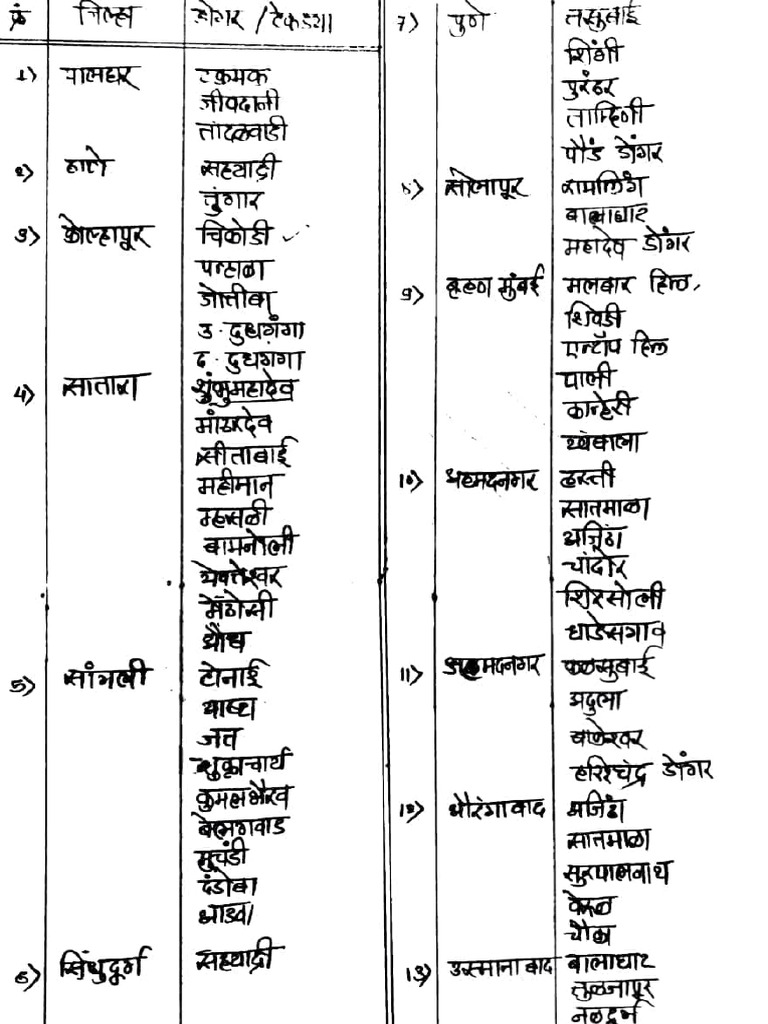 क्रं जिल्हा डोंगर / टेकड्या
1) पालघर टकमक
जीवदानी
तांदळवाडी
2) ठाणे सह्याद्री
तुंगार
3) कोल्हापूर चिकोडी
पन्हाळा
जोतीबा
उ. दुधगंगा
द. दुधगंगा
4) सातारा शंभुमहादेव
मांढरदेव
सीताबाई
महीमान
म्हसळी
बामनोली
येवतेश्वर
मेंढोसी
औंध
5) सांगली होनाई
जत
शुक्राचार्य
कमलभैरव
बेलगवाड
मुचंडी
दंडोबा
आडवा
6) सिंधुदूर्ग सह्याद्री
7) पुणे तसुबाई
शिंगी
पुरंदर
ताम्हिणी
पौड डोंगर
8) सोलापूर रामलिंग
बालाघाट
महादेव डोंगर
9) बृहण मुंबई मलबार हिल,
शिवडी
एन्टॉप हिल
पाली
कान्हेरी
खंबाला
10) अहमदनगर हस्ती
सातमाळा
अजिंठा
चांदोर
शिरसोली
घाडेसगाव
11) अहमदनगर कळसुबाई
अदुला
बाळेश्वर
हरिश्चंद्र डोंगर
12) औरंगाबाद अजिंठा
सातमाळा
सुरपालनाथ
वेरूळ
चौका
13) उस्मानाबाद बालाघाट
तुळजापूर
नळदुर्ग